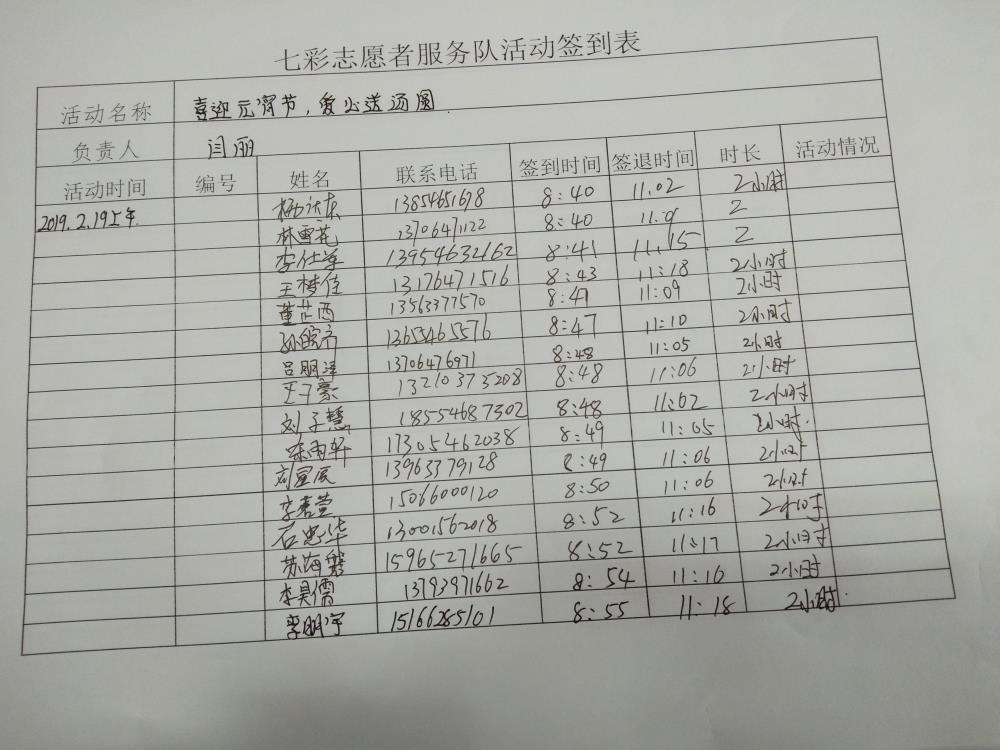 七彩志愿者服务队活动签到表
活动名称 喜迎元宵节,爱心送汤圆.
负责人 闫丽
活动时间 编号 姓名 联系电话 签到时间 签退时间 时长 活动情况
2019.2.19上午. 13854651678 8:40 11:02 2小时
林雪花 13706471122 8:40 2
李仕 13954632162 8:41 11:15 2
王梦佳 13176471516 8:43 11:18 2小时
董芷西 13563377570 8:47 11:09 2小时
孙皖齐 13655465576 8:47 11:10 2小时
吕明泽 13706476971 8:48 11:05 2小时
王子豪 13210373208 8:48 11:06 2小时
刘子慧 18554687302 8:48 11:02 2小时
陈雨轩 17305462038 8:49 11:05 2小时.
刘星辰 13963379128 8:49 11:06 2小时
李嘉萱 15066000120 8:50 11:06 2小时
石忠华 13001562018 8:52 11:16 2小时
苏海 15965271665 8:52 11:17 2小时
李昊儒 13793971662 8:54 11:16 2小时
李明宇 15166285101 8:55 11:18 2小时.